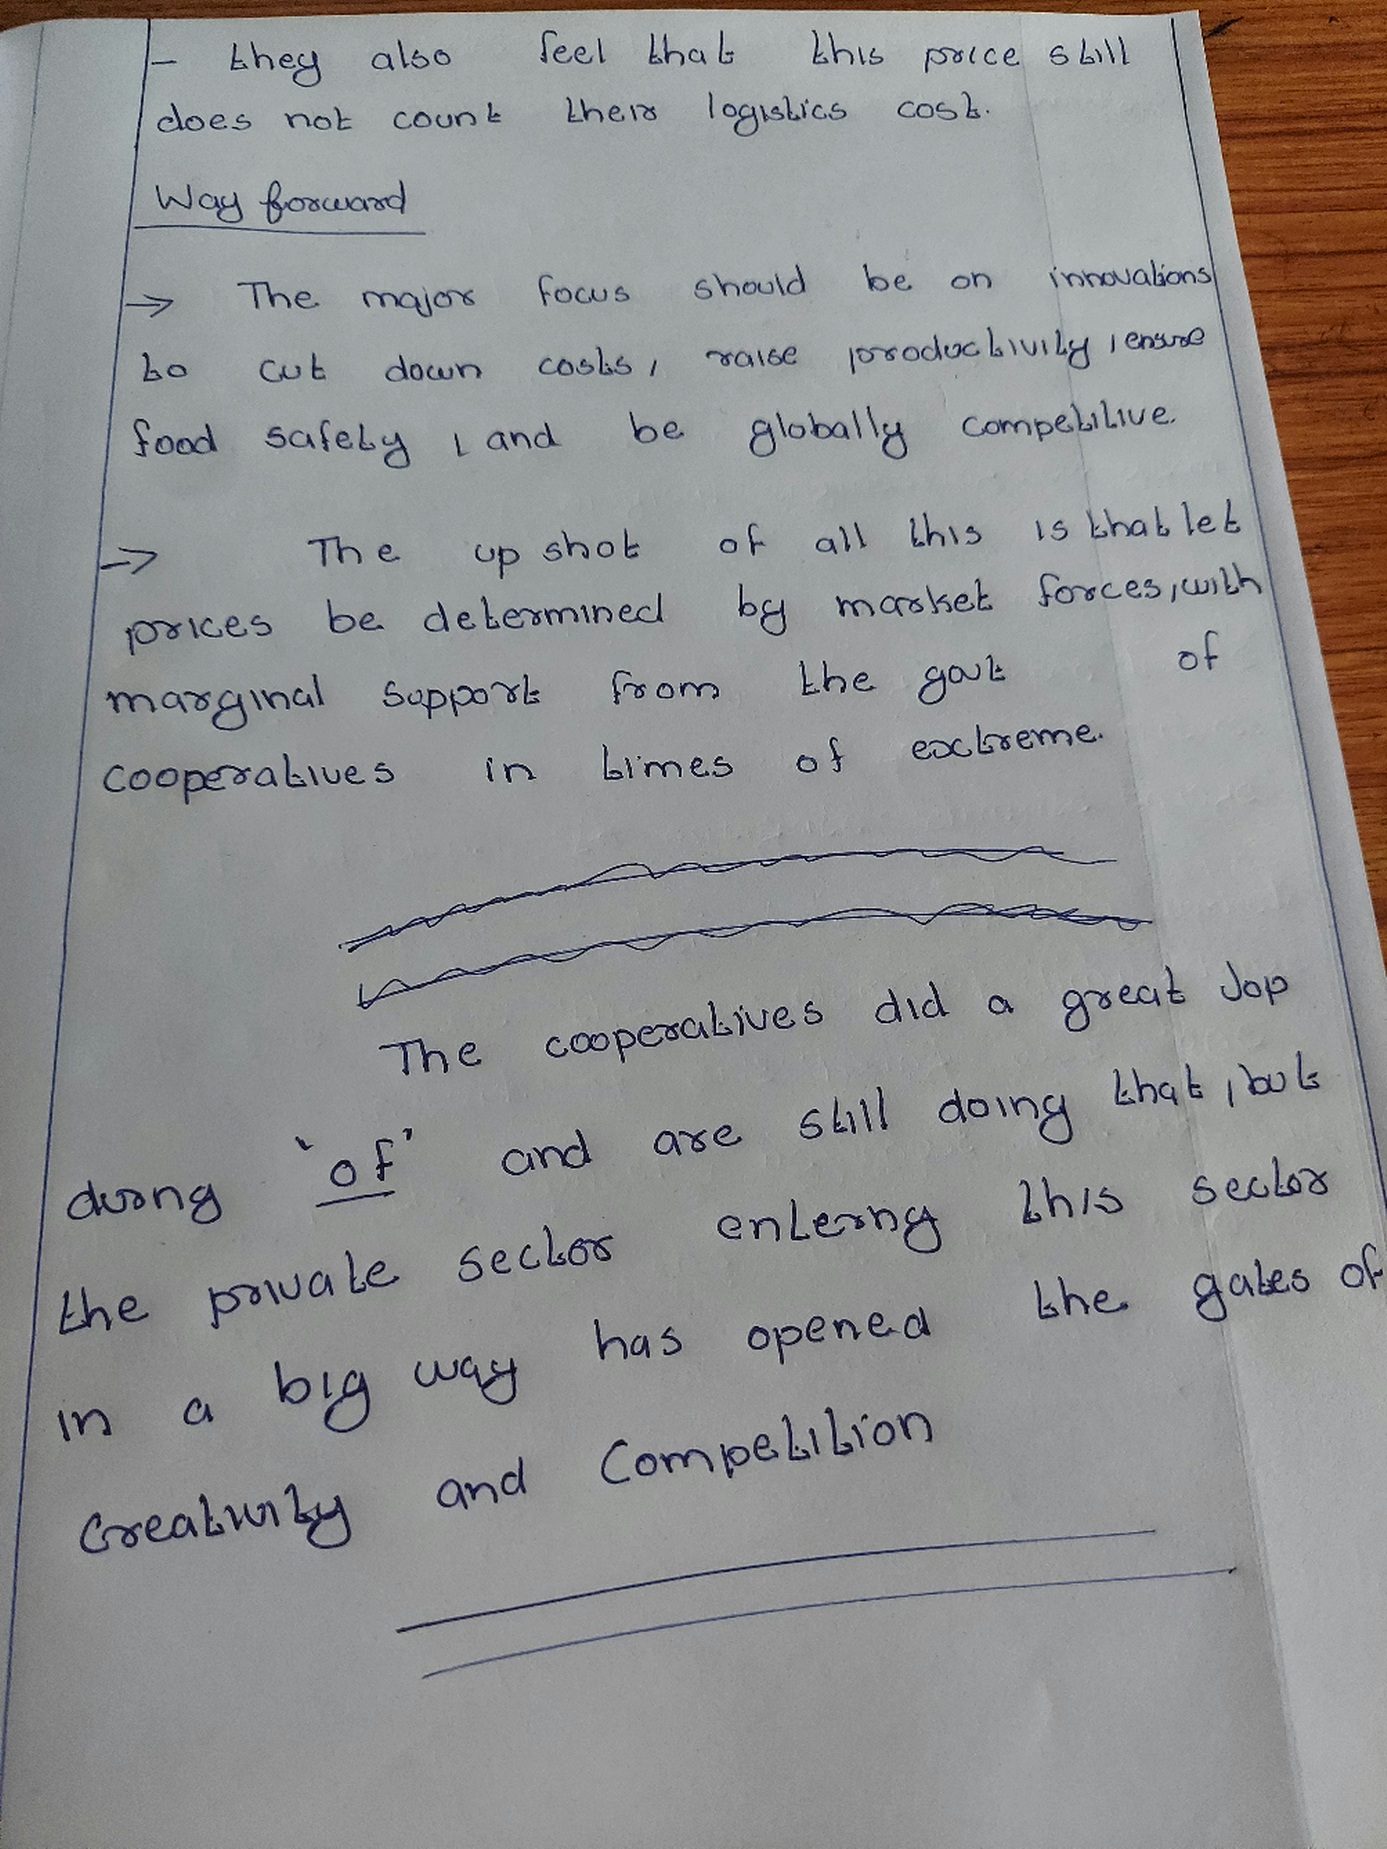 - they also feel that this price still
does not count their logistics cost.
Way forward
→ The major focus should be on innovations
to cut down costs, raise productivity, ensure
food safety, and be globally competitive.
→ The up shot of all this is that let
prices be determined by market forces, with
marginal support from the govt of
cooperatives in times of extreme.
The cooperatives did a great Jop
duong 'of' and are still doing that, but
the private sector enterng this sector
in a big way has opened the gates of
Creativity and Competition